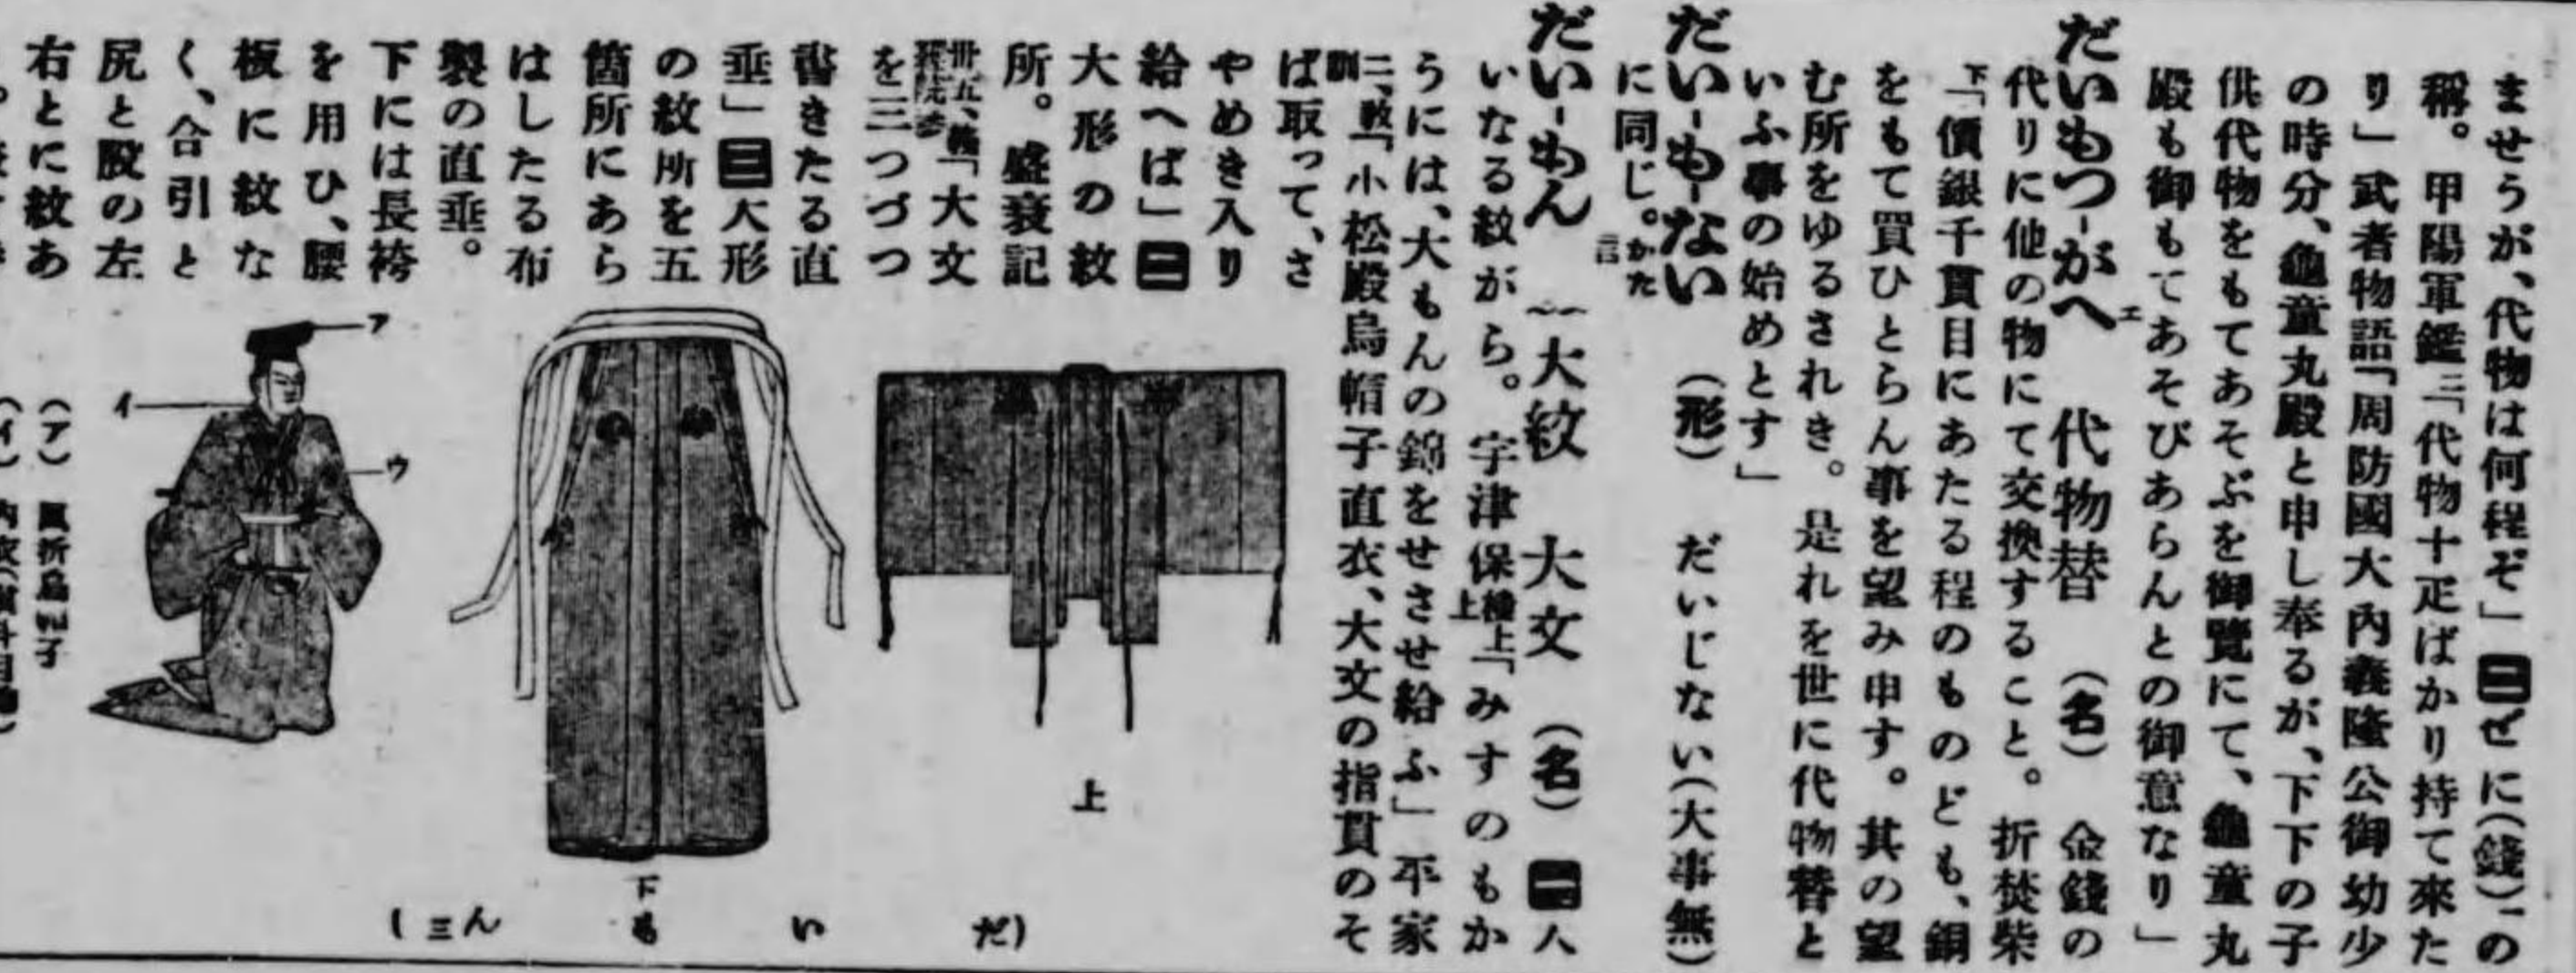 ませうが、代物は何程ぞ」二ぜに(錢)の
稱。甲陽軍鑑三「代物十疋ばかり持て來た
り」武者物語「周防國大內義隆公御幼少
の時分、龜童丸殿と申し奉るが、下下の子
供代物をもてあそぶを御覽にて、龜童丸
殿も御もてあそびあらんとの御意なり」
だいもつ-がへ エ 代物替 (名) 金錢の
代りに他の物にて交換すること。折焚柴
下「價銀千貫目にあたる程のものども、銅
をもて買ひとらん事を望み申す。其の望
む所をゆるされき。是れを世に代物替と
いふ事の始めとす」
だい-も-ない (形) だいじない(大事無)
に同じ。かた言
だい-もん 大紋 大文 (名) 一大
いなる紋がら。宇津保樓上上「みすのもか
うには、大もんの錦をせさせ給ふ」平家
二、敎訓「小松殿烏帽子直衣、大文の指貫のそ
ば取って、さ
やめき入り
給へば」二
大形の紋
所。盛衰記
「大文
を三つづつ
書きたる直
垂」三大形
の紋所を五
箇所にあら
はしたる布
製の直垂。
下には長袴
を用ひ、腰
板に紋な
く、合引と
尻と股の左
右とに紋あ
上
下
(だいもん三)
ア
イ
ウ
(ア) 風折烏帽子
(イ)